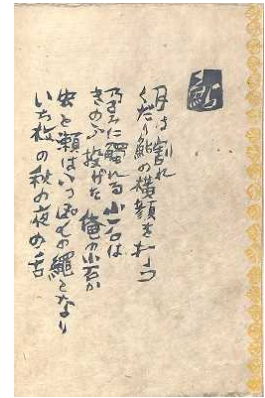 鮎
月は割れ
くだり鮎の横顔をおつ
に觸れる小石は
きのふ投げた俺の小石か
と瀬はいつぽんの縄となり
いち枚の秋の夜の舌